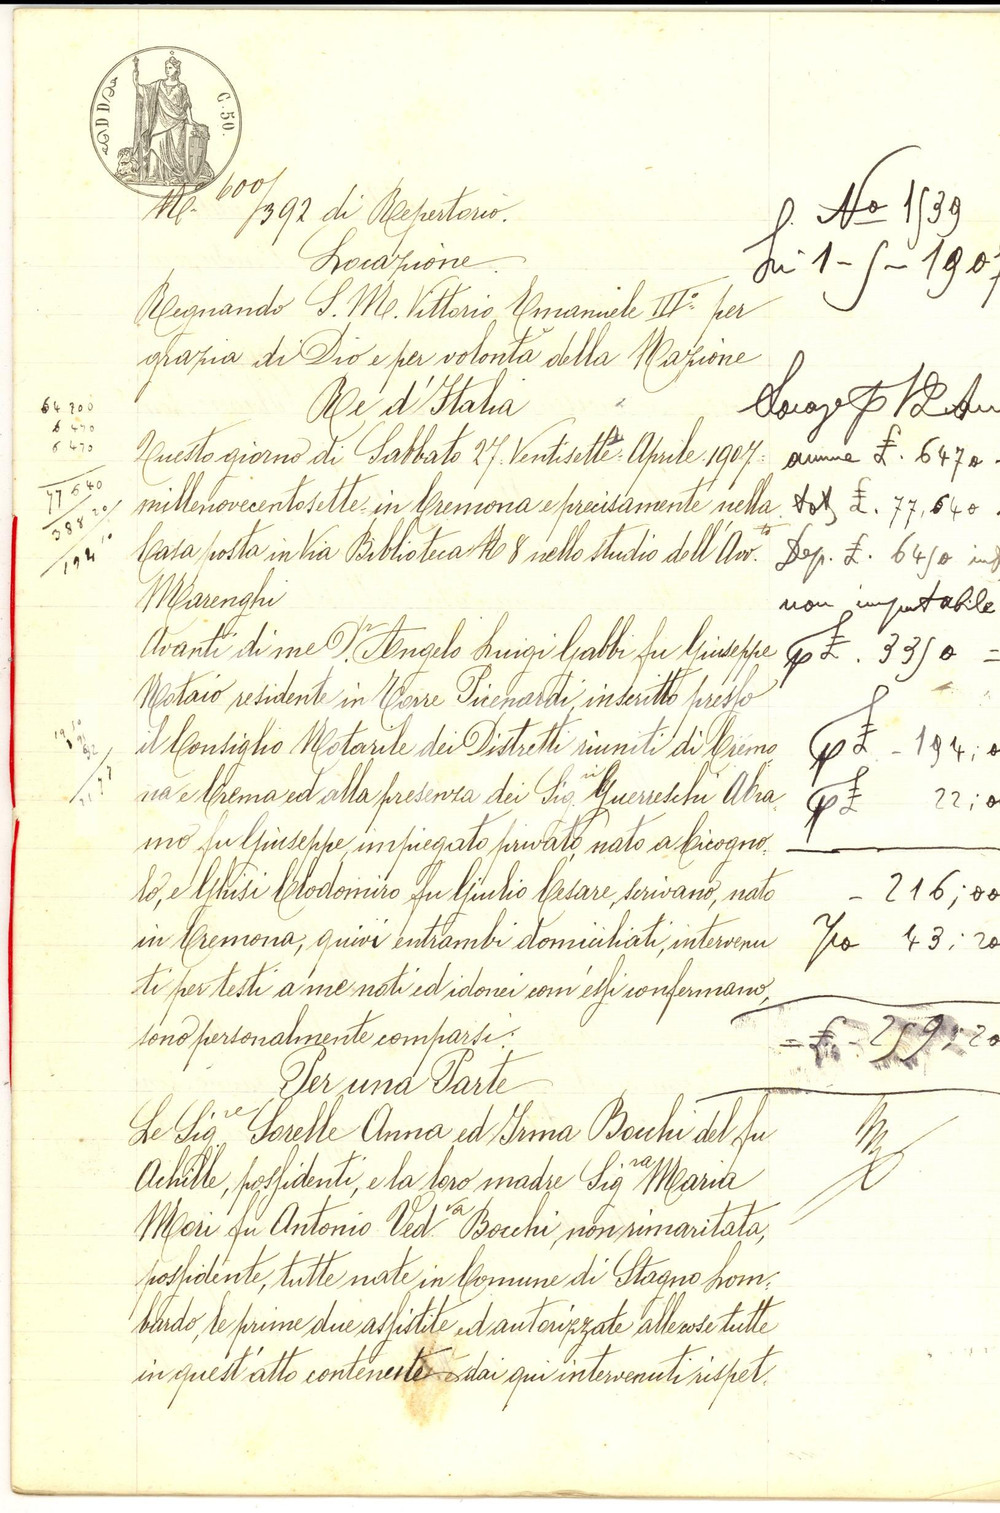 C. 50.
N. 600/392 di Repertorio.
Locazione
Regnando S. M. Vittorio Emanuele III° per
grazia di Dio e per volontà della Nazione
Re d'Italia
Questo giorno di Sabbato 27. Ventisette. Aprile. 1907.
millenovecentosette. in Cremona e precisamente nella
Casa posta in Via Biblioteca N 8 nello studio dell'Avv.to
Marenghi
Avanti di me Dr. Angelo Luigi Gabbi fu Giuseppe
Notaio residente in Torre Picenardi, inscritto presso
il Consiglio Notarile dei Distretti riuniti di Cremo
na e Crema ed alla presenza dei Sig.ri Guerreschi Abra
mo fu Giuseppe, impiegato privato, nato a Cicogno
lo, e Ghisi Clodomiro fu Giulio Cesare, scrivano, nato
in Cremona, quivi entrambi domiciliati, intervenu
ti per testi a me noti ed idonei com'essi confermano,
sono personalmente comparsi:
Per una Parte
Le Sig.re Sorelle Anna ed Irma Bocchi del fu
Achille, possidenti, e la loro madre Sig.ra Maria
Mori fu Antonio Ved.va Bocchi, non rimaritata,
possidente, tutte nate in Comune di Stagno Lom-
bardo, le prime due assistite ed autorizzate alle cose tutte
in quest'atto contenute dai qui intervenuti rispet.
No 1539
Li 1-5-1907
annue £. 6470
tot £. 77,640
Dep. £. 6450
non imputabile
£. 3350 =
£ - 194,0
£ 22,0
- 216,00
43,20
= £ - 259,20
64700
6470
6470
77640
388 20
194 10